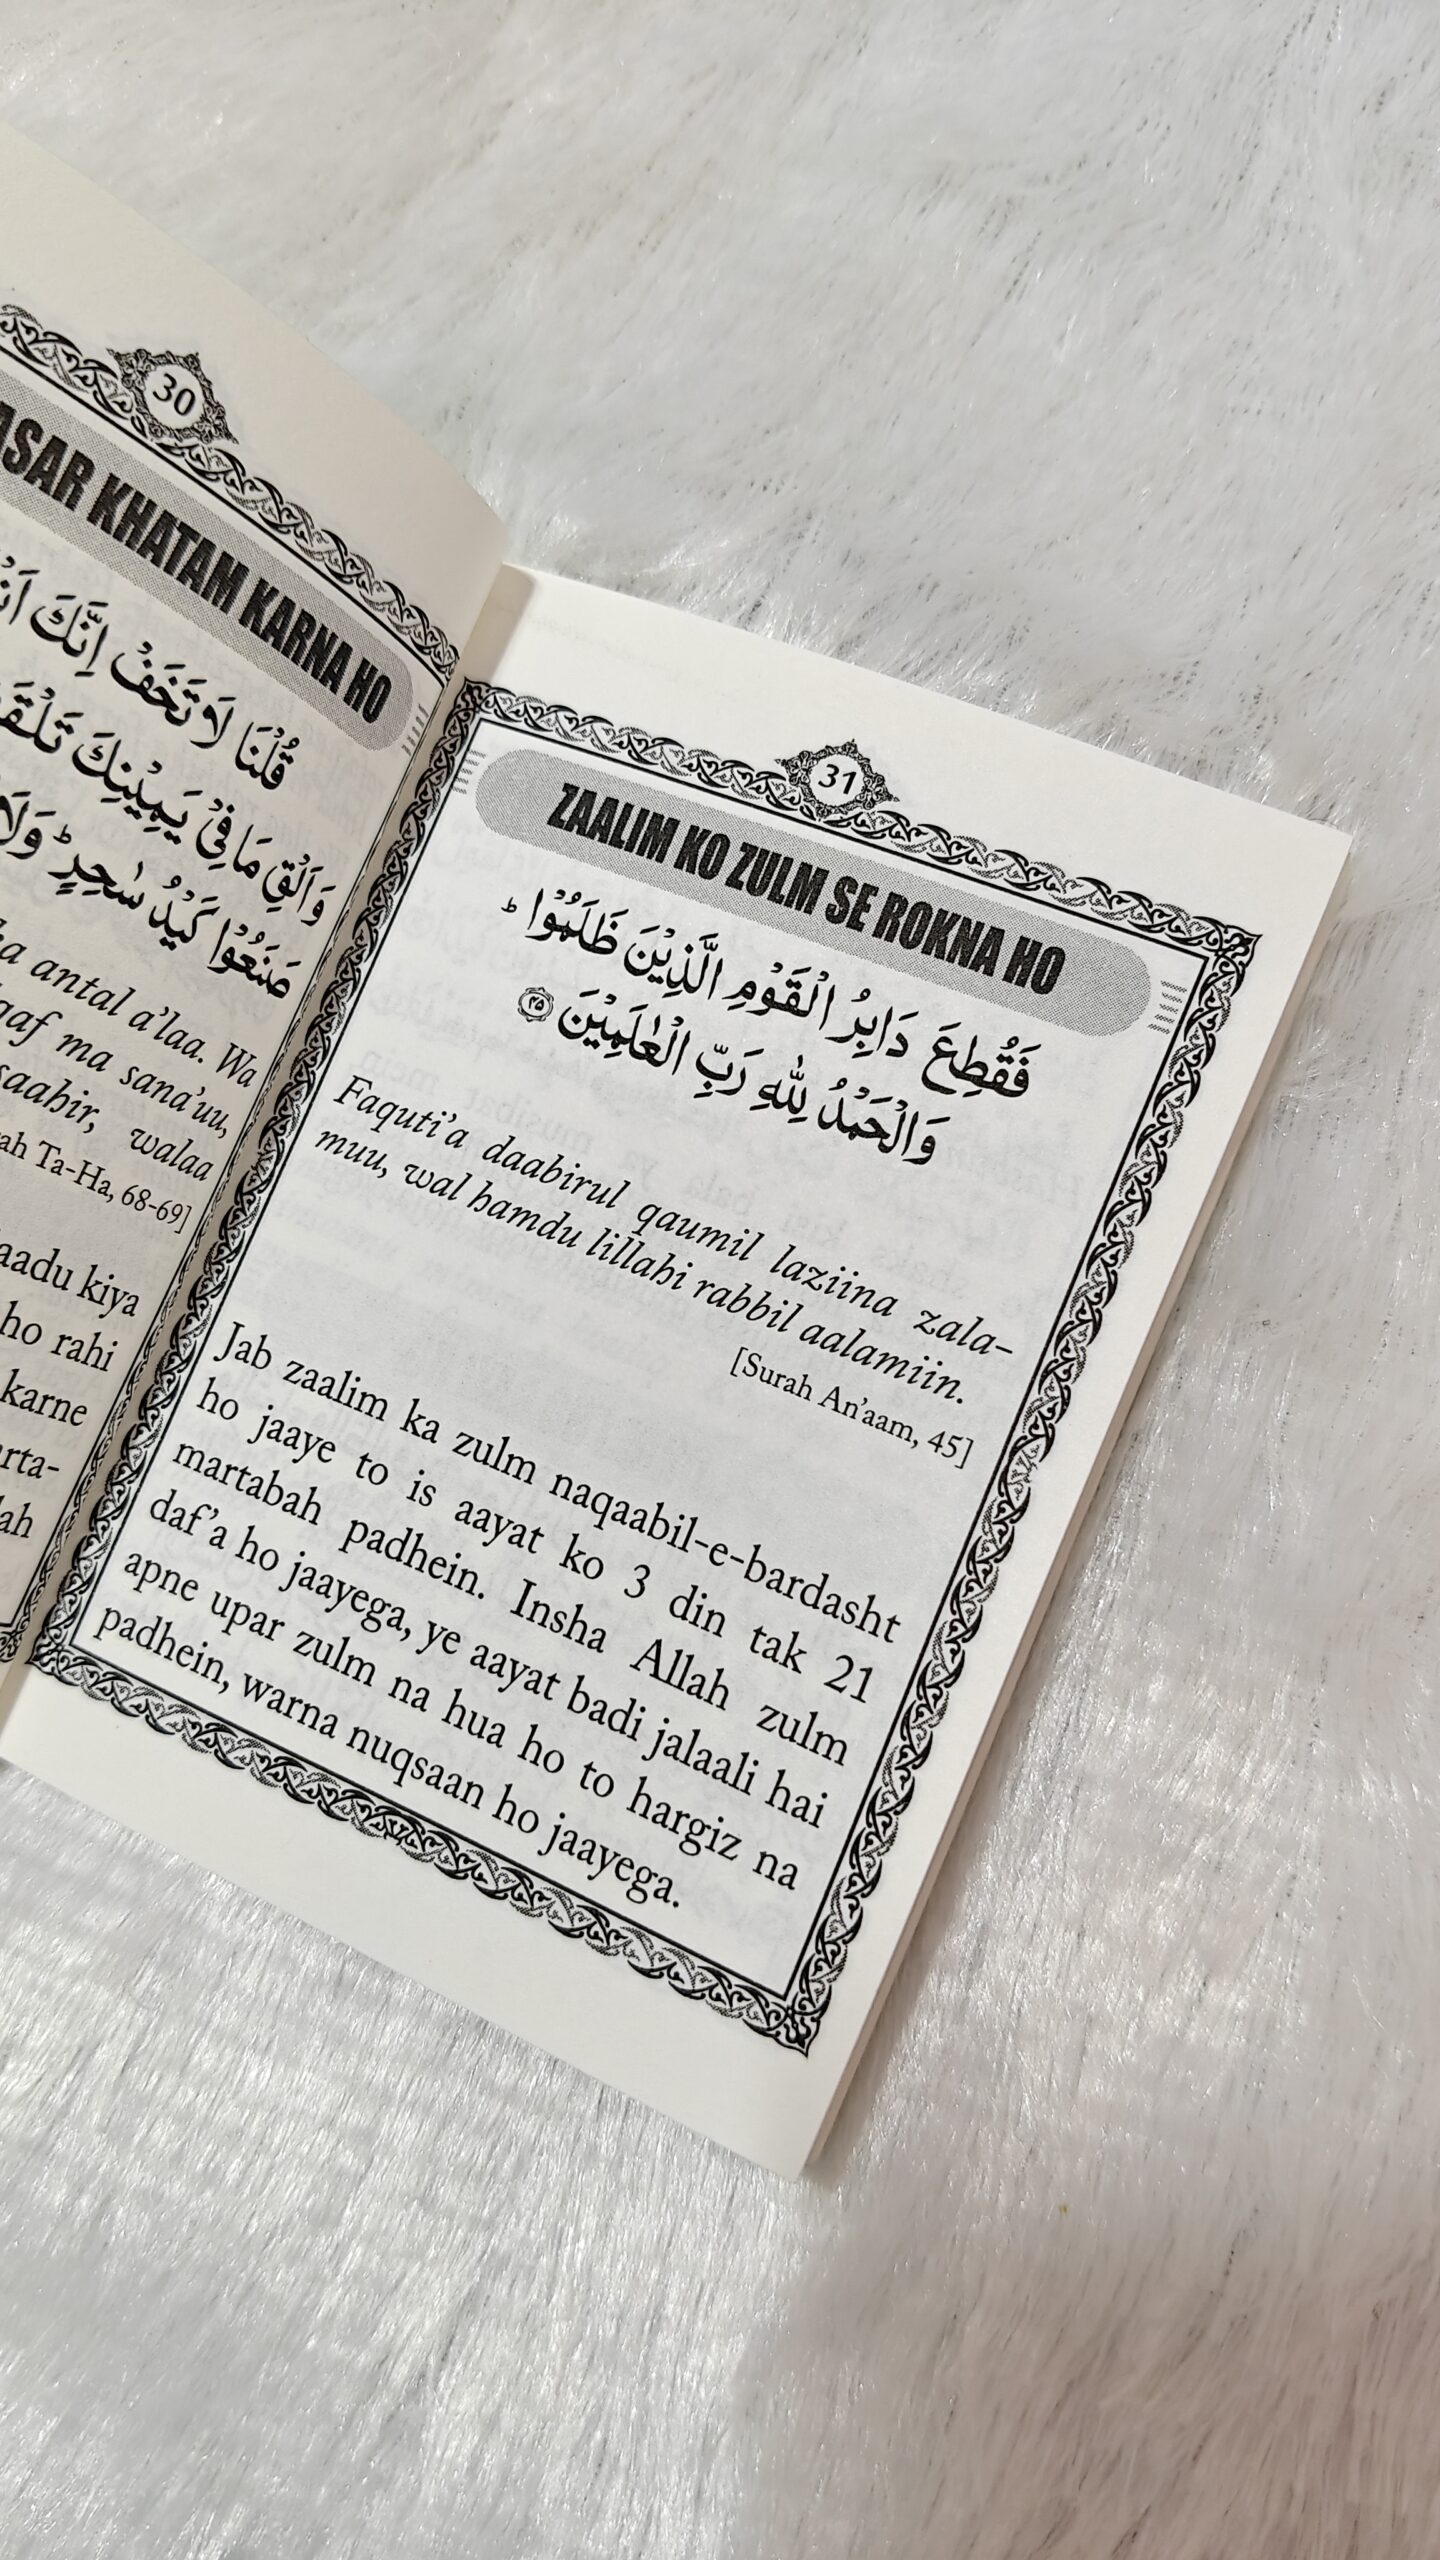 30
ASAR KHATAM KARNA HO
قُلْنَا لَا تَخَفْ اِنَّكَ
وَاَلْقِ مَا فِیْ یَمِیْنِكَ
صَنَعُوْا كَیْدُ سٰحِرٍ ؕ وَلَا
antal a'laa. Wa
ma sana'uu,
saahir, walaa
Ta-Ha, 68-69]
kiya
ho rahi
karne
31
ZAALIM KO ZULM SE ROKNA HO
فَقُطِعَ دَابِرُ الْقَوْمِ الَّذِیْنَ ظَلَمُوْا ؕ
وَالْحَمْدُ لِلّٰهِ رَبِّ الْعٰلَمِیْنَ ۴۵
Faquti'a daabirul qaumil laziina zala-
muu, wal hamdu lillahi rabbil aalamiin.
[Surah An'aam, 45]
Jab zaalim ka zulm naqaabil-e-bardasht
ho jaaye to is aayat ko 3 din tak 21
martabah padhein. Insha Allah zulm
daf'a ho jaayega, ye aayat badi jalaali hai
apne upar zulm na hua ho to hargiz na
padhein, warna nuqsaan ho jaayega.